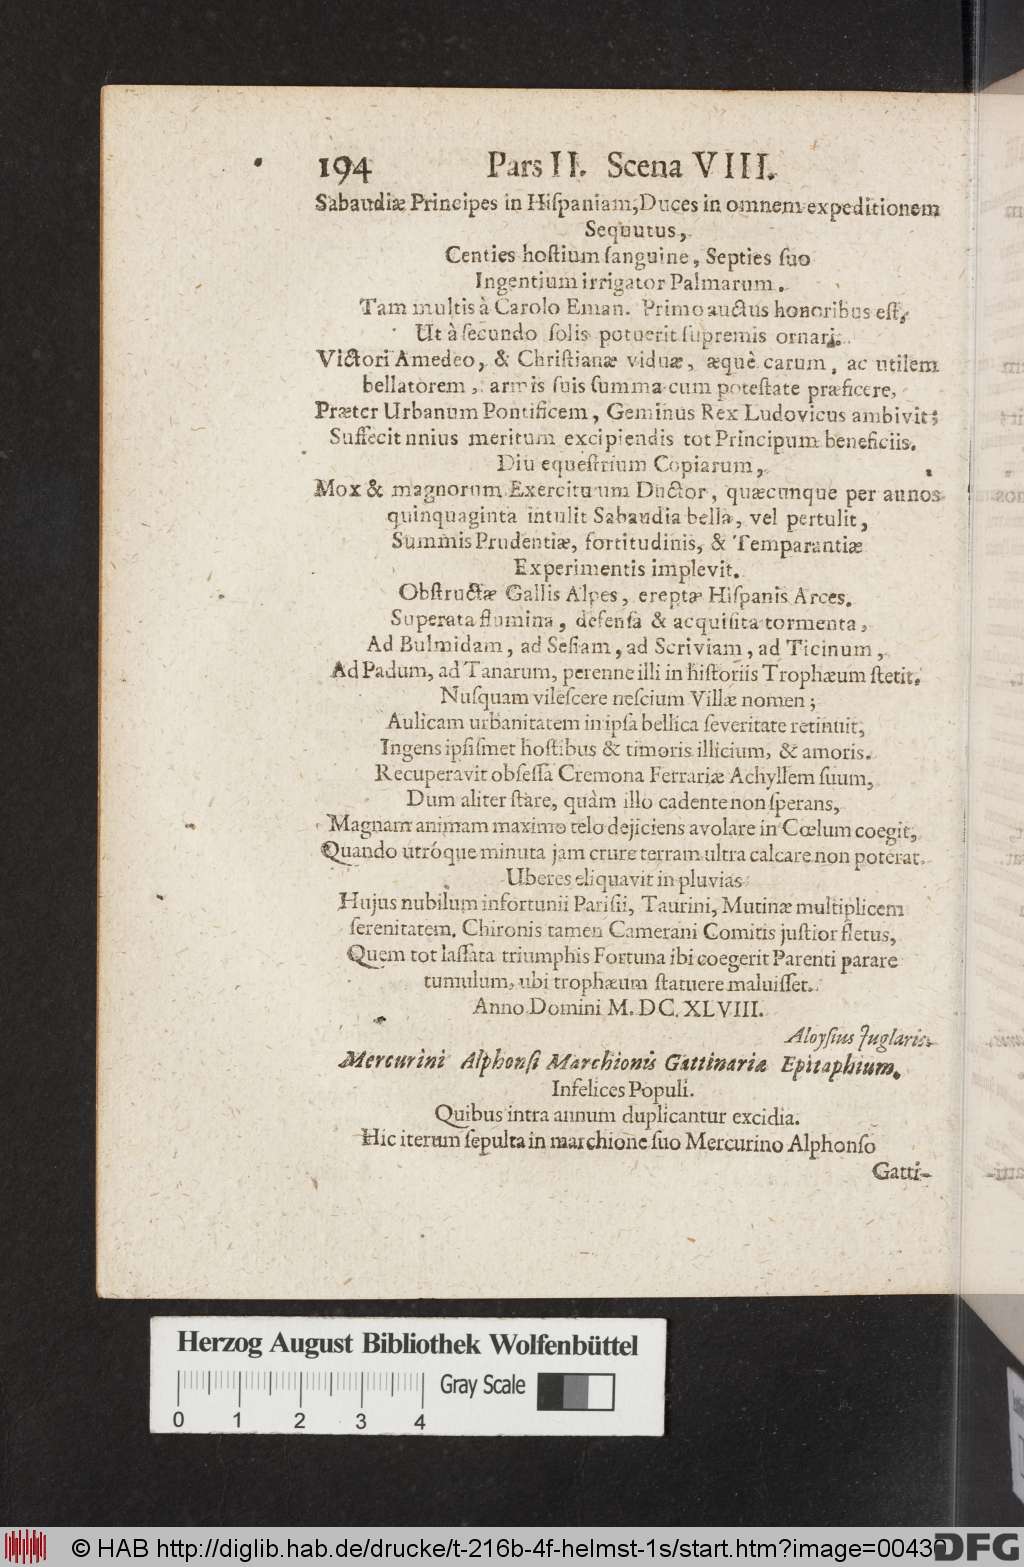 194 Pars II. Scena VIII.
Sabaudiæ Principes in Hiſpaniam, Duces in omnem expeditionem
Sequutus,
Centies hoſtium ſanguine, Septies ſuo
Ingentium irrigator Palmarum.
Tam multis à Carolo Eman. Primo auctus honoribus eſt,
Ut à ſecundo ſolis potuerit ſupremis ornari.
Victori Amedeo, & Chriſtianæ viduæ, æquè carum, ac utilem
bellatorem, armis ſuis ſumma cum poteſtate præficere,
Præter Urbanum Pontificem, Geminus Rex Ludovicus ambivit;
Suffecit nnius meritum excipiendis tot Principum beneficiis.
Diu equeſtrium Copiarum,
Mox & magnorum Exercituum Ductor, quæcunque per annos
quinquaginta intulit Sabaudia bella, vel pertulit,
Summis Prudentiæ, fortitudinis, & Temparantiæ
Experimentis implevit.
Obſtructæ Gallis Alpes, ereptæ Hiſpanis Arces.
Superata flumina, defenſa & acquiſita tormenta,
Ad Bulmidam, ad Seſiam, ad Scriviam, ad Ticinum,
Ad Padum, ad Tanarum, perenne illi in hiſtoriis Trophæum ſtetit.
Nuſquam vileſcere neſcium Villæ nomen;
Aulicam urbanitatem in ipſa bellica ſeveritate retinuit,
Ingens ipſiſmet hoſtibus & timoris illicium, & amoris.
Recuperavit obſeſſa Cremona Ferrariæ Achyllem ſuum,
Dum aliter ſtare, quàm illo cadente non ſperans,
Magnam animam maximo telo dejiciens avolare in Cœlum coegit,
Quando utróque minuta jam crure terram ultra calcare non poterat.
Uberes eliquavit in pluvias
Hujus nubilum infortunii Pariſii, Taurini, Mutinæ multiplicem
ſerenitatem. Chironis tamen Camerani Comitis juſtior fletus,
Quem tot laſſata triumphis Fortuna ibi coegerit Parenti parare
tumulum, ubi trophæum ſtatuere maluiſſet.
Anno Domini M. DC. XLVIII.
Aloyſius Juglaris.
Mercurini Alphonſi Marchionis Gattinariæ Epitaphium.
Infelices Populi.
Quibus intra annum duplicantur excidia.
Hic iterum ſepulta in marchione ſuo Mercurino Alphonſo
Gatti-
Herzog August Bibliothek Wolfenbüttel
Gray Scale
0 1 2 3 4
© HAB http://diglib.hab.de/drucke/t-216b-4f-helmst-1s/start.htm?image=00430
DFG